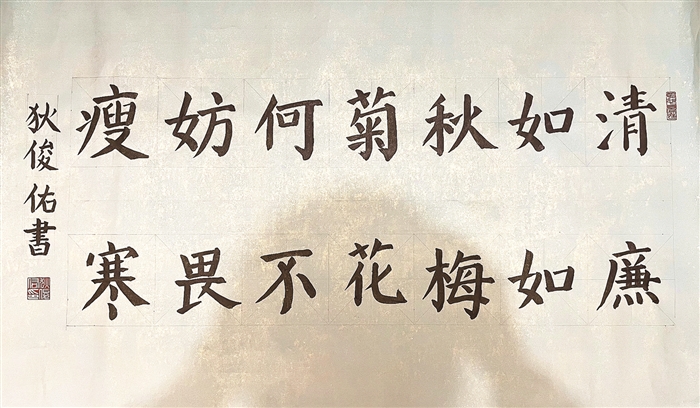 清如秋菊何妨瘦
廉如梅花不畏寒
狄俊佑書